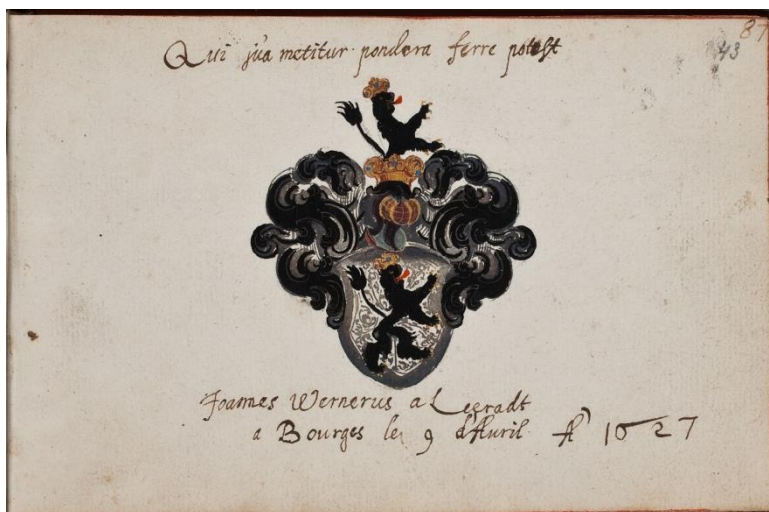 87
43
Qui sua metitur pondera ferre potest
Joannes Wernerus a Leeradt
a Bourges le 9 d'Auril Aº 1627